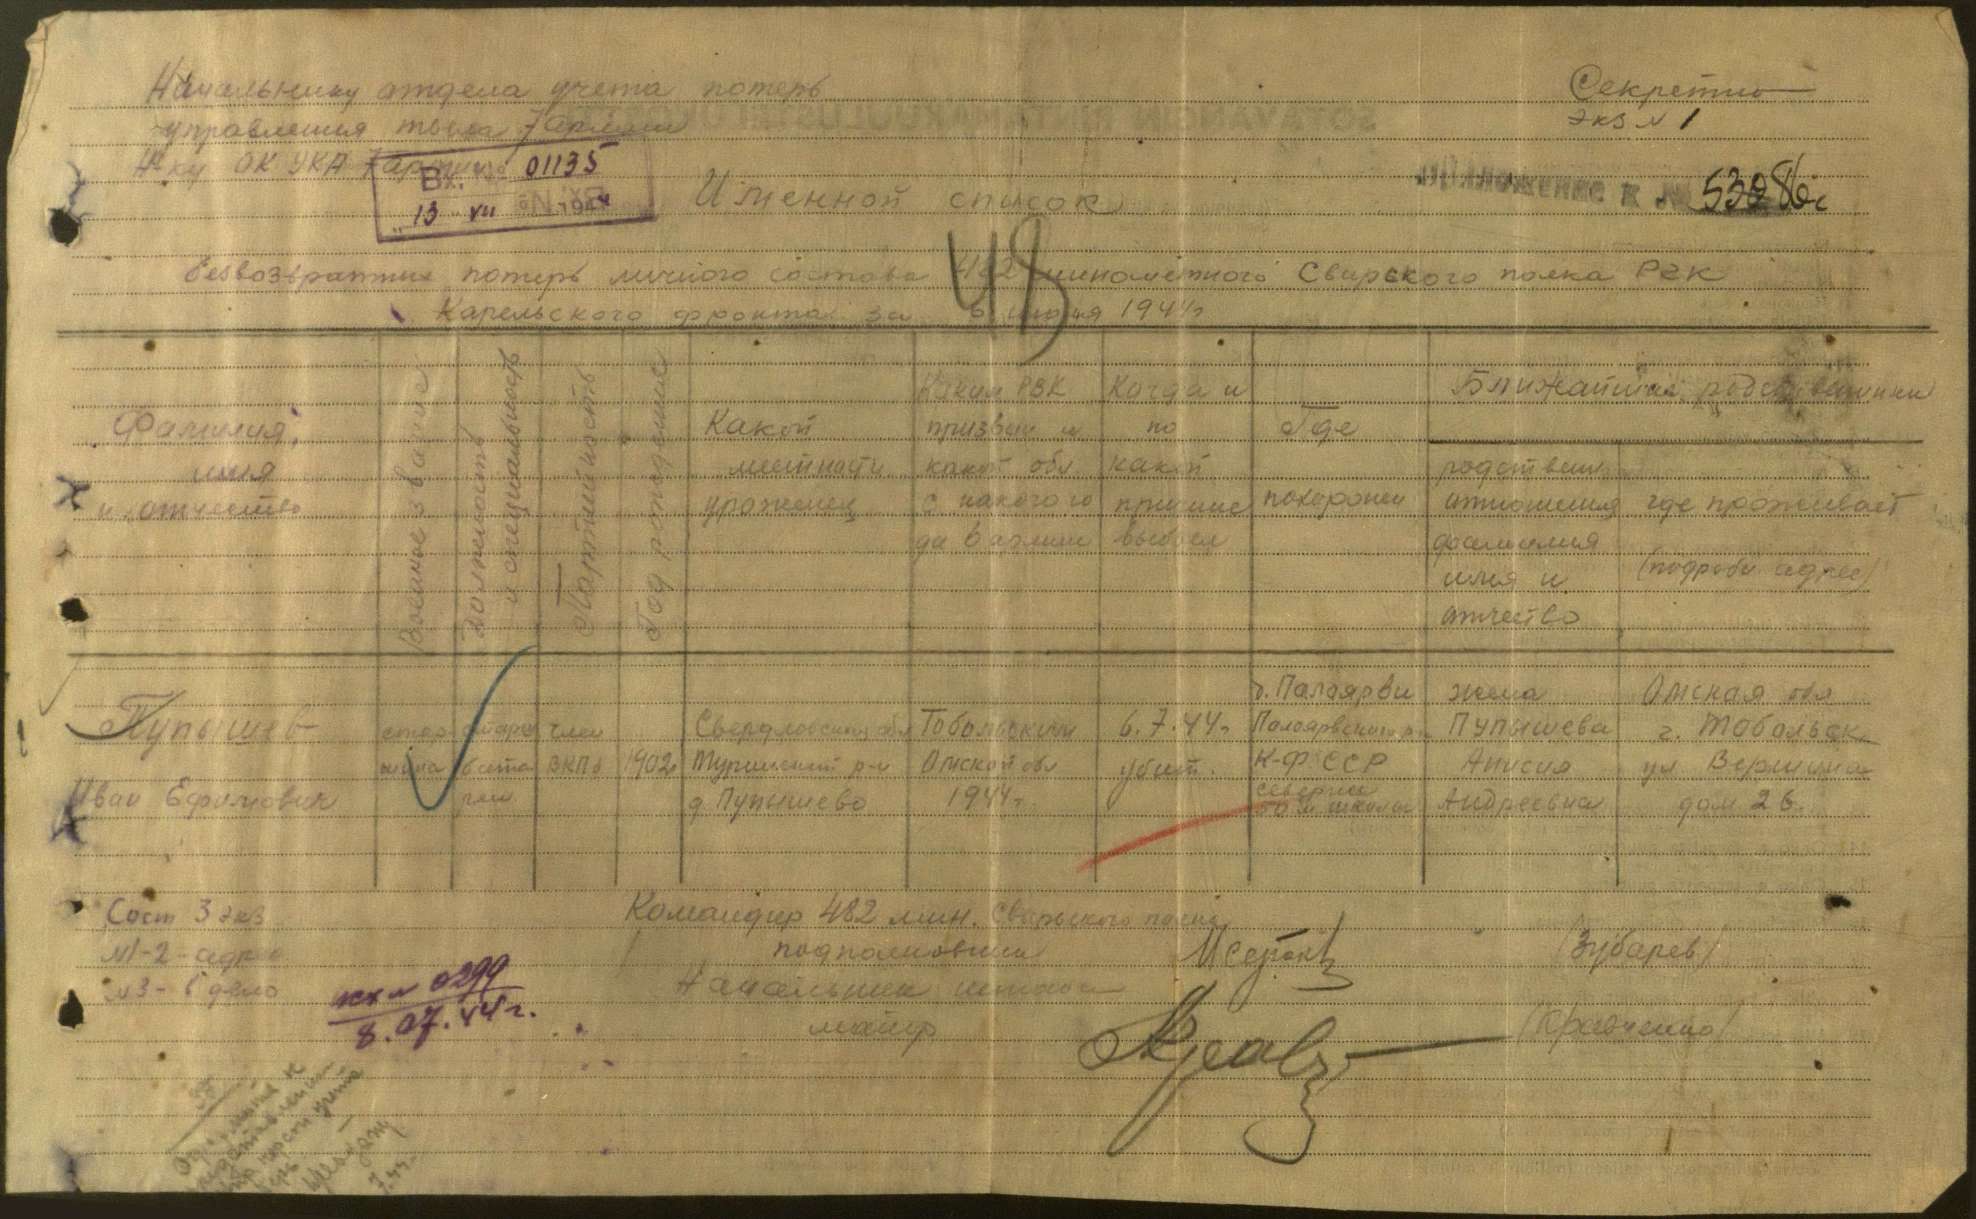 Начальнику отдела учета потерь
управления тыла 7 армии
Н-ку ОК УКА 7 армии
Секретно
Экз № 1
Вх. № 01135
"13" VII 194
Приложение к № 53086с
Именной список
48
безвозвратных потерь личного состава 482 минометного Свирского полка РГК
Карельского фронта за 6 июля 1944 г
Фамилия,
имя
и отчество
Военное звание
Должность
и специальность
Партийность
Год рождения
Какой
местности
уроженец
Каким РВК
призван и
какой обл
с какого го
да в армии
Когда и
по
какой
причине
выбыл
Где
похоронен
Ближайшие родственники
родствен
отношения
фамилия
имя и
отчество
где проживает
(подробн адрес)
Пупышев
Иван Ефимович
стар
шина
член
ВКПб
1902
Свердловской обл
Туринский р-н
д. Пупышево
Тобольским
Омской обл
1944 г.
6.7.44 г
убит.
д. Палоярви
К-Ф ССР
севернее
50 м школы
жена
Пупышева
Анисия
Андреевна
Омская обл
г. Тобольск
ул
дом 26.
Сост 3 экз
№1-2-адрес
№3- в дело
исх № 0299
8.07.44 г.
Командир 482 мин. Свирского полка
подполковник
(Зубарев)
Начальник штаба
майор
(Кравченко)